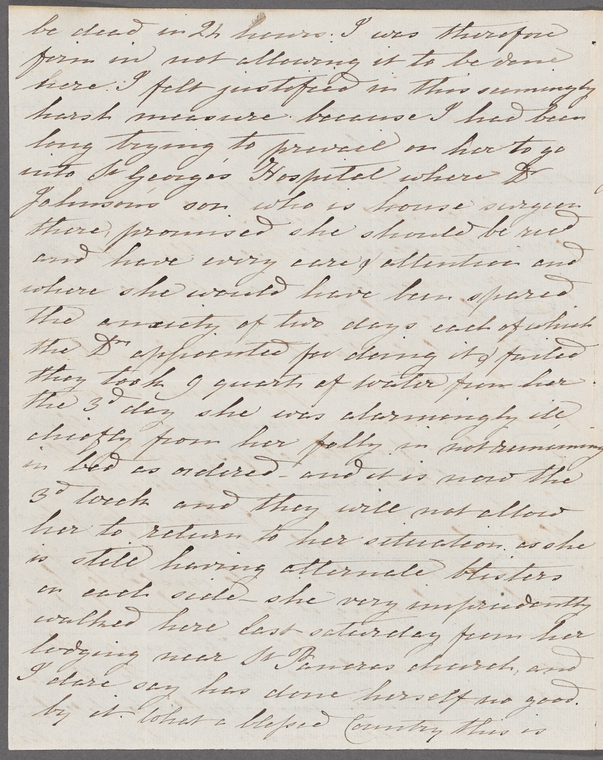 be dead in 24 hours. I was therefore
firm in not allowing it to be done
here. I felt justified in this seemingly
harsh measure because I had been
long trying to prevail on her to go
into St George's Hospital where Dr
Johnsons son who is house surgeon
there, promised she should be recd
and have every care & attention and
where she would have been spared
the anxiety of two days each of which
the Dr appointed for doing it & failed
they took 9 quarts of water from her.
the 3d day she was alarmingly ill,
chiefly from her folly in not remaining
in bed as ordered - and it is now the
3d week and they will not allow
her to return to her situation as she
is still having alternate blisters
on each side - she very imprudently
walked here last saturday from her
lodging near St Pancras church and
I dare say has done herself no good.
by it. What a blessed Country this is